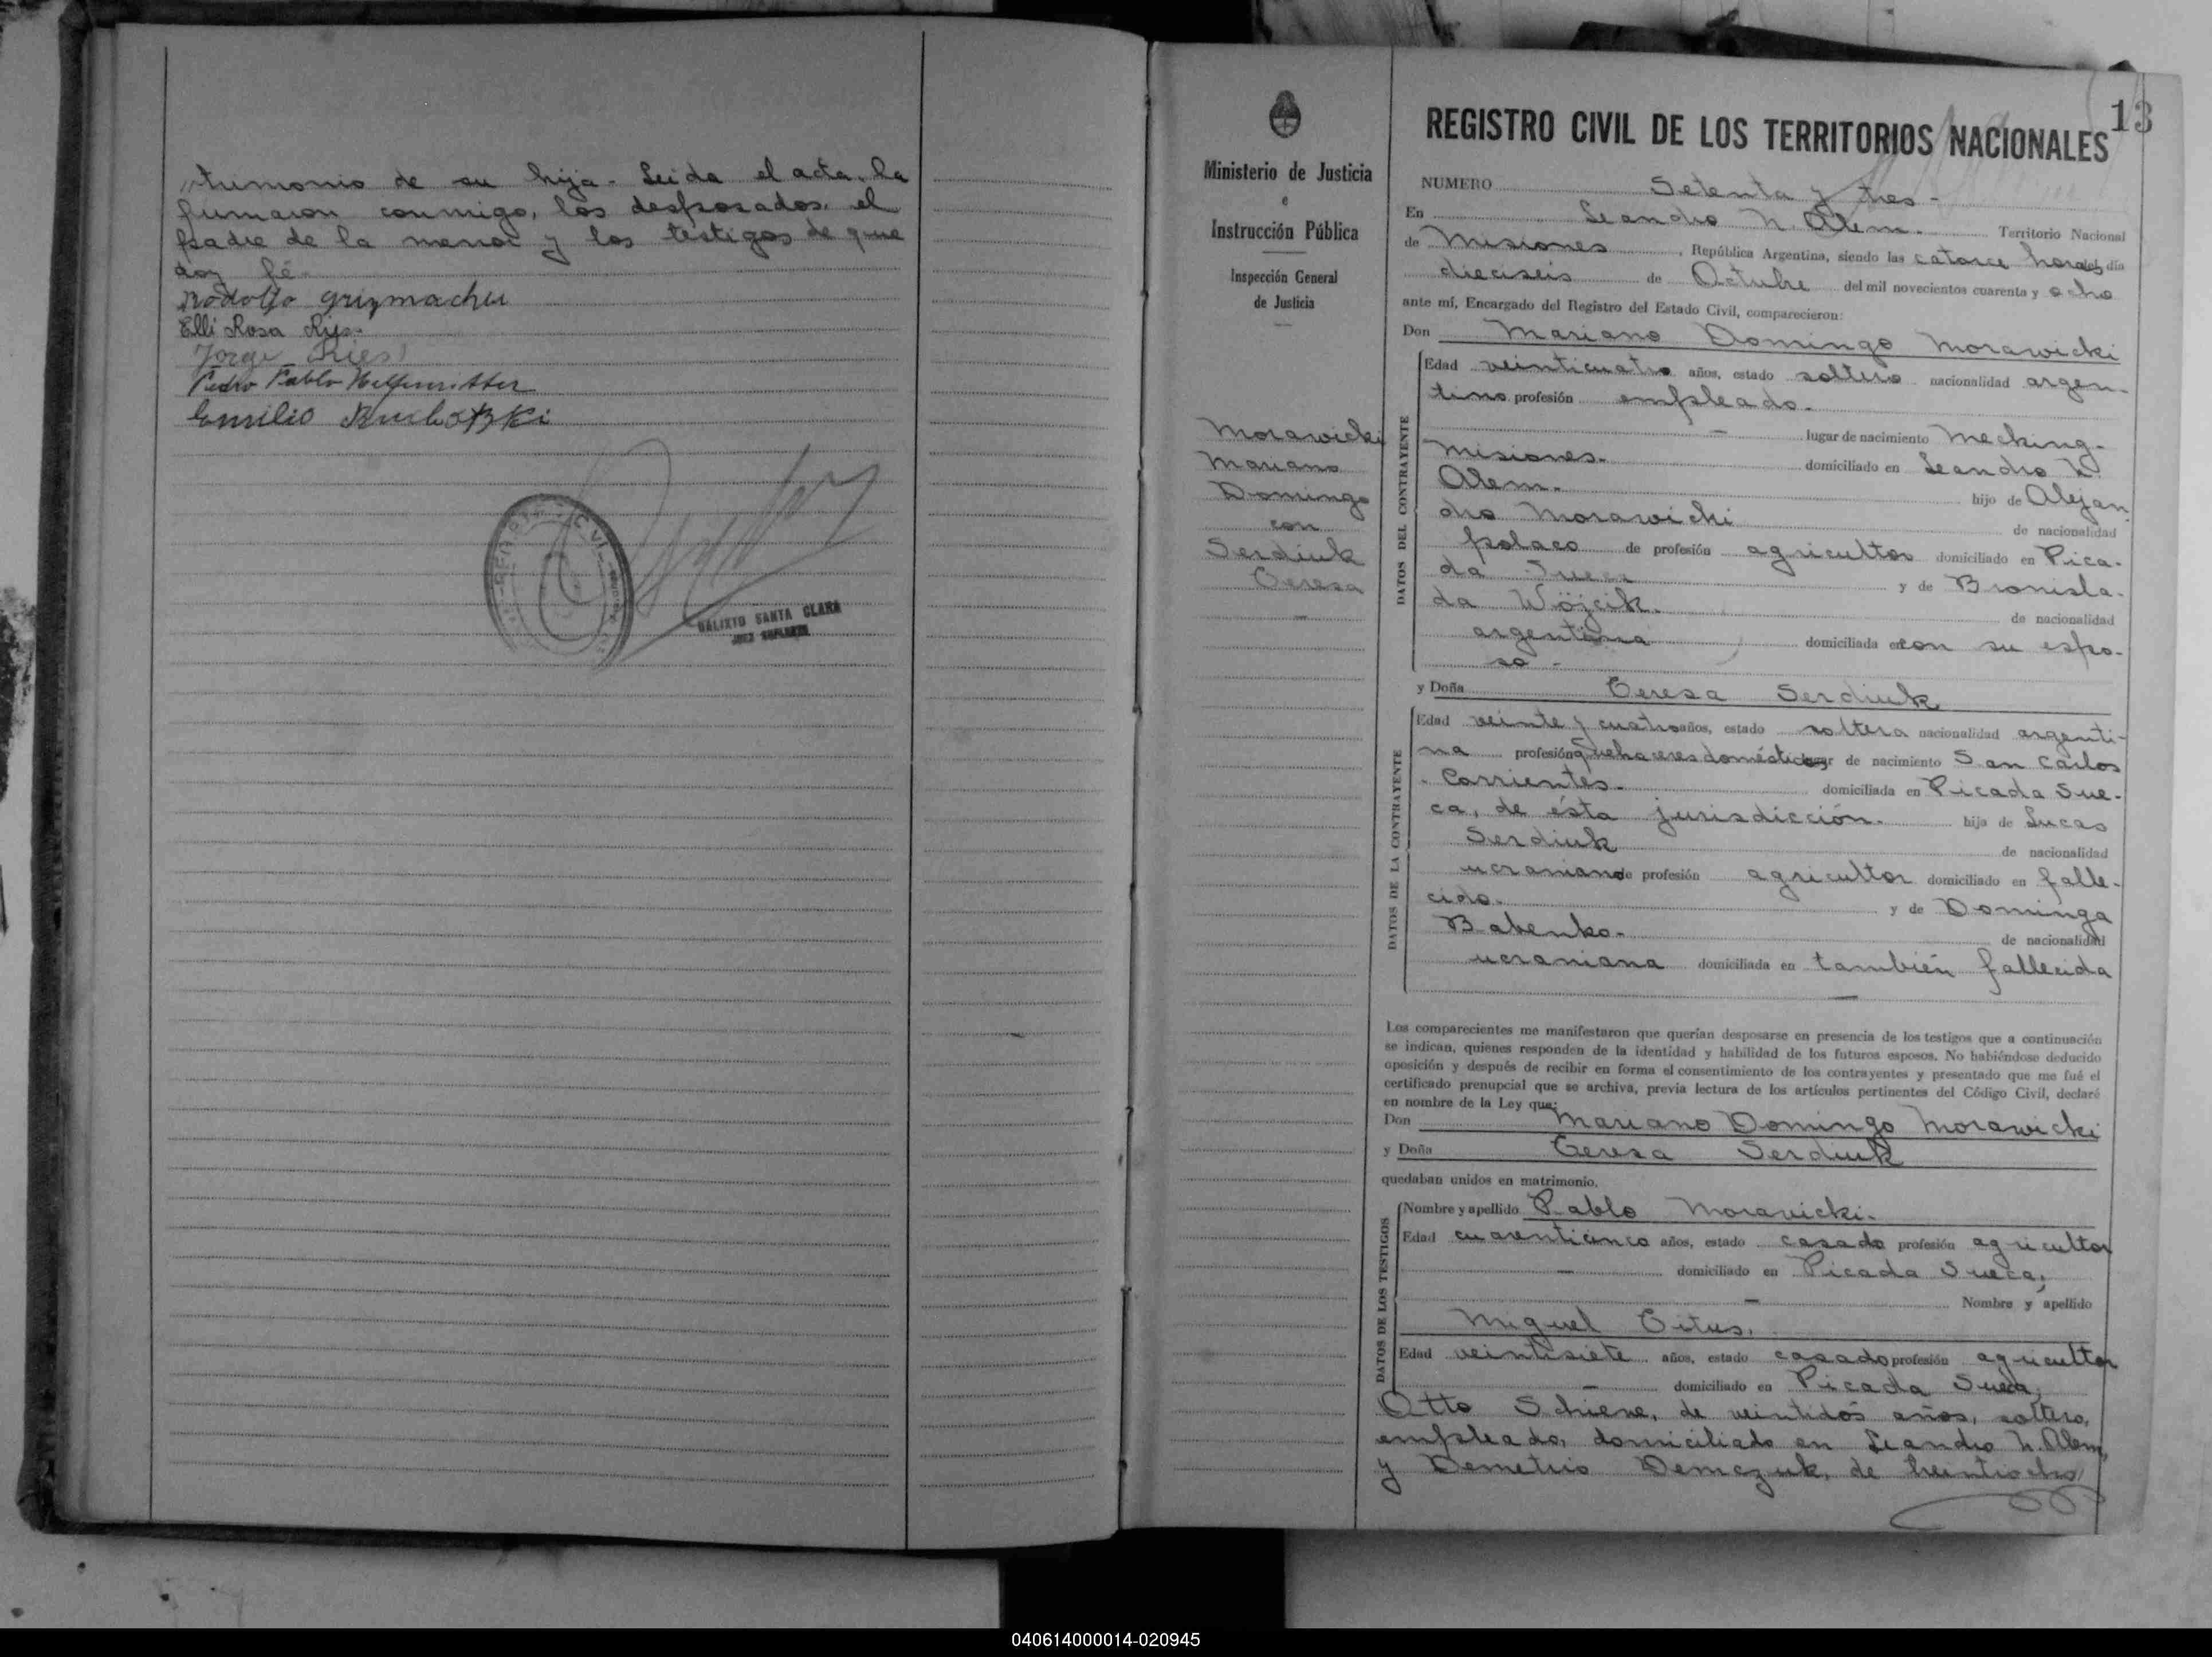 trimonio de su hija - Leida el acta, la
firmaron conmigo, los desposados, el
padre de la menor y los testigos de que
doy fé.
Rodolfo Grizmacher
Elli Rosa Ries.
Jorge Ries
Pedro Pablo
Emilio
REGISTRO CIVIL
CALIXTO SANTA CLARA
JUEZ SUPLENTE
13
Ministerio de Justicia
e
Instrucción Pública
Inspección General
de Justicia
Morawicki
Mariano
Domingo
con
Serdiuk
Teresa
REGISTRO CIVIL DE LOS TERRITORIOS NACIONALES
NUMERO Setenta y tres -
En Leandro N. Alem. Territorio Nacional
de Misiones, República Argentina, siendo las catorce horas del día
dieciseis de Octubre del mil novecientos cuarenta y ocho
ante mí, Encargado del Registro del Estado Civil, comparecieron:
Don Mariano Domingo Morawicki
DATOS DEL CONTRAYENTE
Edad veinticuatro años, estado soltero nacionalidad argen-
tino profesión empleado.
- lugar de nacimiento Mecking-
Misiones. domiciliado en Leandro N.
Alem. hijo de Alejan
dro Morawicki de nacionalidad
polaco de profesión agricultor domiciliado en Pica-
da Sueca y de Bronisla-
da Wójcik. de nacionalidad
argentina domiciliada en con su espo-
so -
y Doña Teresa Serdiuk
DATOS DE LA CONTRAYENTE
Edad veinte y cuatro años, estado soltera nacionalidad argenti-
na profesión quehaceres domésticos lugar de nacimiento San Carlos
- Corrientes. domiciliada en Picada Sue-
ca, de ésta jurisdicción. hija de Lucas
Serdiuk de nacionalidad
ucraniano de profesión agricultor domiciliado en falle-
cido. y de Dominga
Babenko. de nacionalidad
ucraniana domiciliada en también fallecida
Los comparecientes me manifestaron que querían desposarse en presencia de los testigos que a continuación
se indican, quienes responden de la identidad y habilidad de los futuros esposos. No habiéndose deducido
oposición y después de recibir en forma el consentimiento de los contrayentes y presentado que me fué el
certificado prenupcial que se archiva, previa lectura de los artículos pertinentes del Código Civil, declaré
en nombre de la Ley que:
Don Mariano Domingo Morawicki
y Doña Teresa Serdiuk
quedaban unidos en matrimonio.
DATOS DE LOS TESTIGOS
Nombre y apellido Pablo Moravicki.
Edad cuarenticinco años, estado casado profesión agricultor
- domiciliado en Picada Sueca,
- Nombre y apellido
Miguel Titus,
Edad veintisiete años, estado casado profesión agricultor
- domiciliado en Picada Sueca,
Otto Schiene, de veintidós años, soltero,
empleado, domiciliado en Leandro N. Alem,
y Demetrio Demczuk, de treintiocho
040614000014-020945